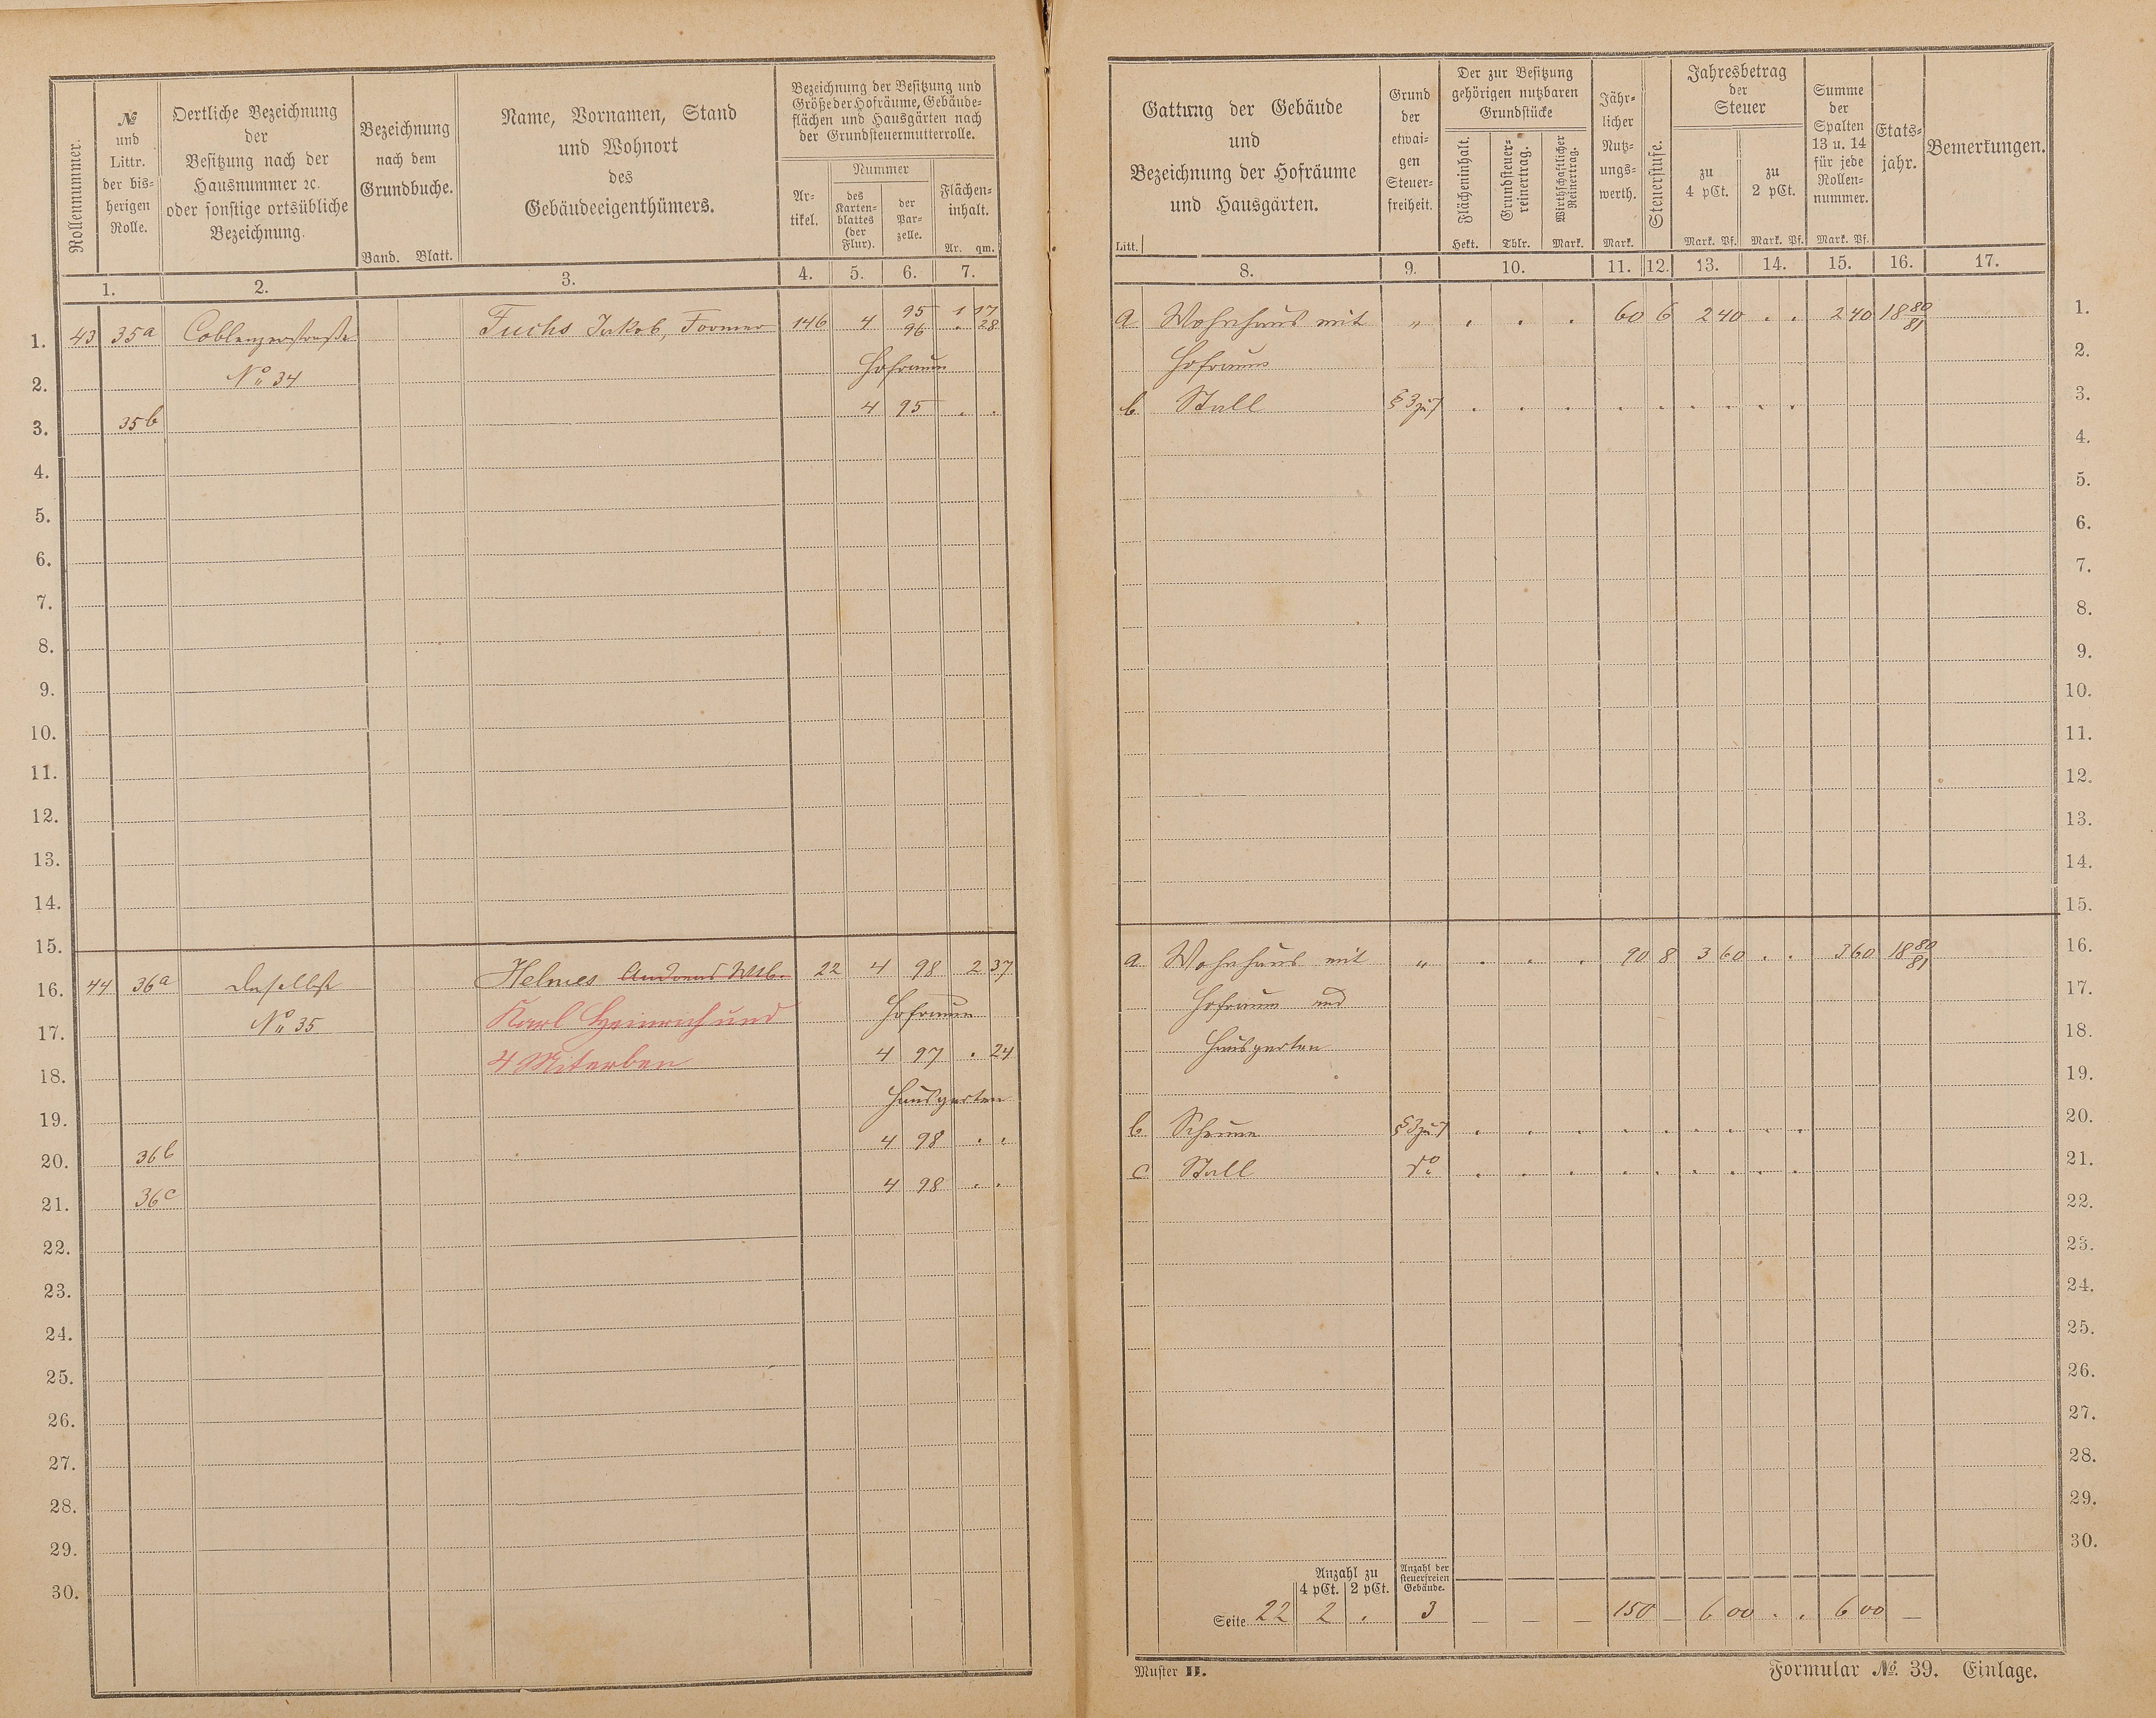 Rollennummer.
№
und
Littr.
der bis-
herigen
Rolle.
Oertliche Bezeichnung
der
Besitzung nach der
Hausnummer ꝛc.
oder sonstige ortsübliche
Bezeichnung.
Bezeichnung
nach dem
Grundbuche.
Band. Blatt.
Name, Vornamen, Stand
und Wohnort
des
Gebäudeeigenthümers.
Bezeichnung der Besitzung und
Größe der Hofräume, Gebäude-
flächen und Hausgärten nach
der Grundsteuermutterrolle.
Ar-
tikel.
Nummer
des
Karten-
blattes
(der
Flur).
der
Par-
zelle.
Flächen-
inhalt.
Ar. qm.
1. 2. 3. 4. 5. 6. 7.
1. 43 35a Coblenzerstraße Fuchs Jakob, Former 146 4 95 1 17
96 . 28
2. No 34 Hofraum
3. 35b 4 95 . .
4.
5.
6.
7.
8.
9.
10.
11.
12.
13.
14.
15.
16. 44 36a daselbst Helmes Andreas Wtb. 22 4 98 2 37
17. No 35 Karl Heinrich und Hofraum
18. 4 Miterben 4 97 . 24
19. Hausgarten
20. 36b 4 98 . .
21. 36c 4 98 . .
22.
23.
24.
25.
26.
27.
28.
29.
30.
Gattung der Gebäude
und
Bezeichnung der Hofräume
und Hausgärten.
Litt.
Grund
der
etwai-
gen
Steuer-
freiheit.
Der zur Besitzung
gehörigen nutzbaren
Grundstücke
Flächeninhalt.
Hekt.
Grundsteuer-
reinertrag.
Thlr.
Wirthschaftlicher
Reinertrag.
Mark.
Jähr-
licher
Nutz-
ungs-
werth.
Mark.
Steuerstufe.
Jahresbetrag
der
Steuer
zu
4 pCt.
Mark. Pf.
zu
2 pCt.
Mark. Pf.
Summe
der
Spalten
13 u. 14
für jede
Rollen-
nummer.
Mark. Pf.
Etats-
jahr.
Bemerkungen.
8. 9. 10. 11. 12. 13. 14. 15. 16. 17.
a Wohnhaus mit " . . . 60 6 2 40 . . 2 40 1880/81 1.
Hofraum 2.
b Stall § 3 zu 7 . . . . . . . . . 3.
4.
5.
6.
7.
8.
9.
10.
11.
12.
13.
14.
15.
a Wohnhaus mit " . . . 90 8 3 60 . . 3 60 1880/81 16.
Hofraum und 17.
Hausgarten 18.
19.
b Scheune § 3 zu 7 . . . . . . . . . 20.
c Stall do . . . . . . . . . 21.
22.
23.
24.
25.
26.
27.
28.
29.
30.
Anzahl zu
4 pCt. 2 pCt.
Anzahl der
steuerfreien
Gebäude.
Seite 22 2 . 3 — — — 150 — 6 00 . . 6 00 —
Muster II.
Formular №. 39. Einlage.